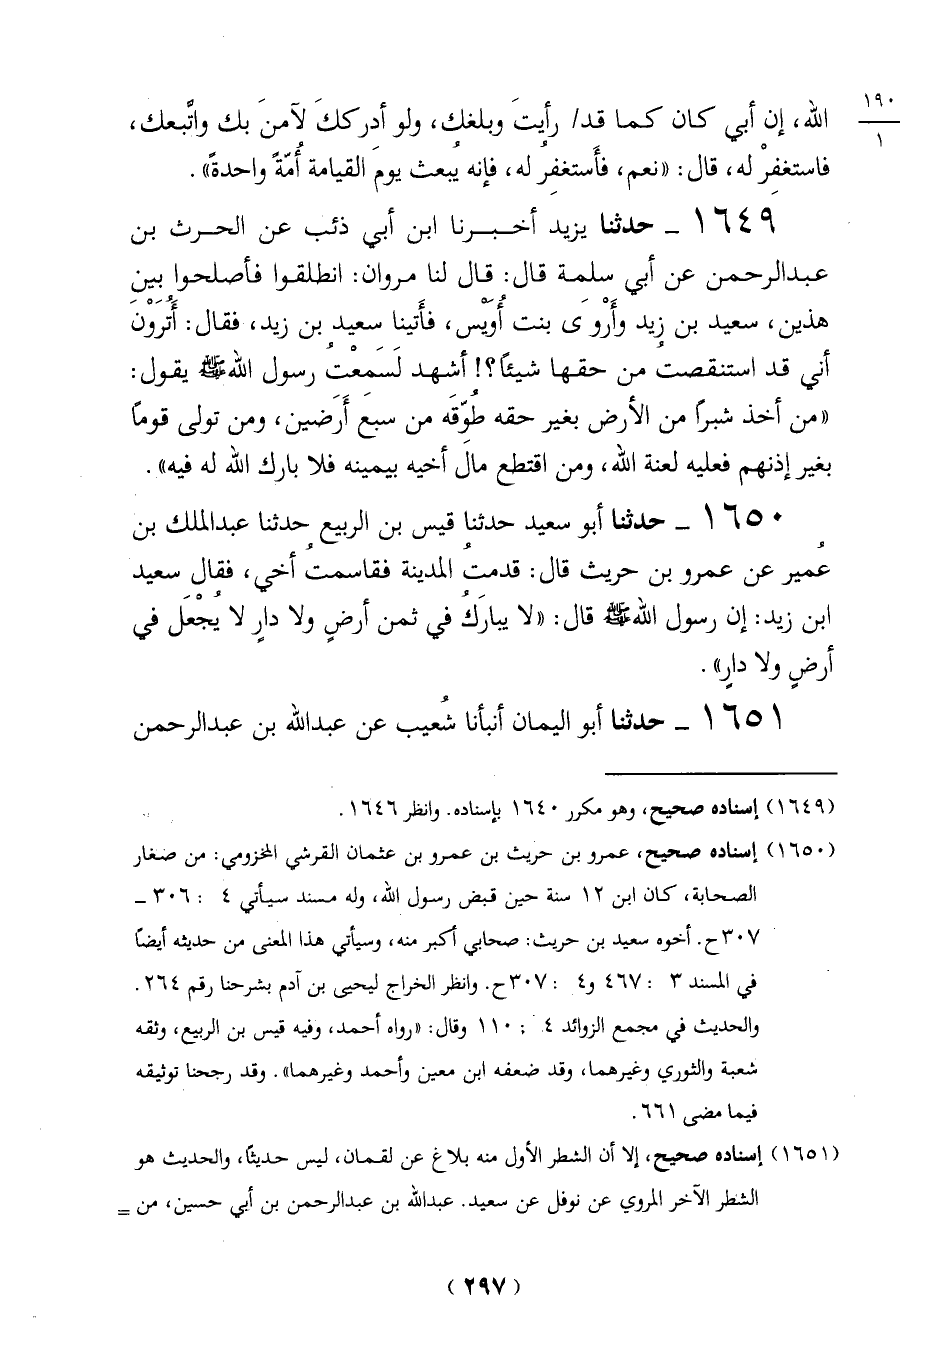 ١٩٠
١
الله، إن أبي كان كما قد/ رأيتَ وبلغك، ولو أدركك لآمن بك واتَّبعك،
فاستغفرْ له، قال: «نعم، فأستغفرُ له، فإنه يبعث يومَ القيامة أُمّةً واحدةً».
١٦٤٩ ـ حدثنا يزيد أخبرنا ابن أبي ذئب عن الحرث بن
عبدالرحمن عن أبي سلمة قال: قال لنا مروان: انطلقوا فأصلحوا بين
هذين، سعيد بن زيد وأَرْوَى بنت أُوَيْس، فأَتينا سعيد بن زيد، فقال: أَتُرَوْنَ
أني قد استنقصتُ من حقها شيئاً؟! أشهد لَسَمِعْتُ رسول الله ﷺ يقول:
«من أخذ شبراً من الأرض بغير حقه طُوِّقَه من سبع أَرَضين، ومن تولى قوماً
بغير إذنهم فعليه لعنة الله، ومن اقتطع مالَ أخيه بيمينه فلا بارك الله له فيه».
١٦٥٠ ـ حدثنا أبو سعيد حدثنا قيس بن الربيع حدثنا عبدالملك بن
عُمير عن عمرو بن حُريث قال: قدمتُ المدينة فقاسمتُ أخي، فقال سعيد
ابن زيد: إن رسول الله ﷺ قال: «لا يبارَكُ في ثمن أرضٍ ولا دارٍ لا يُجْعَل في
أرضٍ ولا دارٍ».
١٦٥١ ـ حدثنا أبو اليمان أنبأنا شُعيب عن عبدالله بن عبدالرحمن
(١٦٤٩) إسناده صحيح، وهو مكرر ١٦٤٠ بإسناده. وانظر ١٦٤٦.
(١٦٥٠) إسناده صحيح، عمرو بن حريث بن عمرو بن عثمان القرشي المخزومي: من صغار
الصحابة، كان ابن ١٢ سنة حين قبض رسول الله، وله مسند سيأتي ٤ : ٣٠٦ ـ
٣٠٧ح. أخوه سعيد بن حريث: صحابي أكبر منه، وسيأتي هذا المعنى من حديثه أيضاً
في المسند ٣ : ٤٦٧ و٤ : ٣٠٧ح. وانظر الخراج ليحيى بن آدم بشرحنا رقم ٢٦٤.
والحديث في مجمع الزوائد ٤ : ١١٠ وقال: «رواه أحمد، وفيه قيس بن الربيع، وثقه
شعبة والثوري وغيرهما، وقد ضعفه ابن معين وأحمد وغيرهما». وقد رجحنا توثيقه
فيما مضى ٦٦١.
(١٦٥١) إسناده صحيح، إلا أن الشطر الأول منه بلاغ عن لقمان، ليس حديثاً، والحديث هو
الشطر الآخر المروي عن نوفل عن سعيد. عبدالله بن عبدالرحمن بن أبي حسين، من =
(٢٩٧)